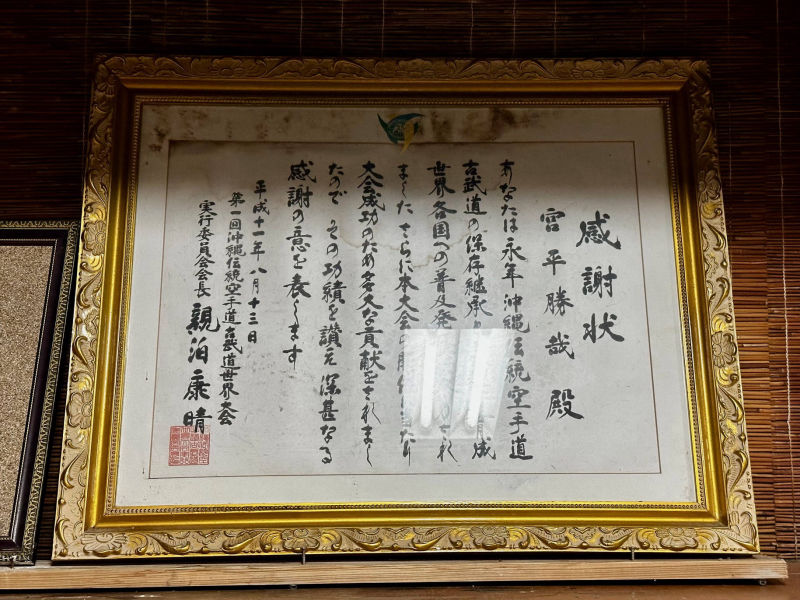 感謝状
宮平勝哉 殿
あなたは永年沖縄伝統空手道
古武道の保存継承 育成
世界各国への普及発 され
ました さらに本大会の開催に当たり
大会成功のため多大な貢献をされまし
たので その功績を讃え深甚なる
感謝の意を表します
平成十一年八月十三日
第一回沖縄伝統空手道古武道世界大会
実行委員会会長 親泊康晴